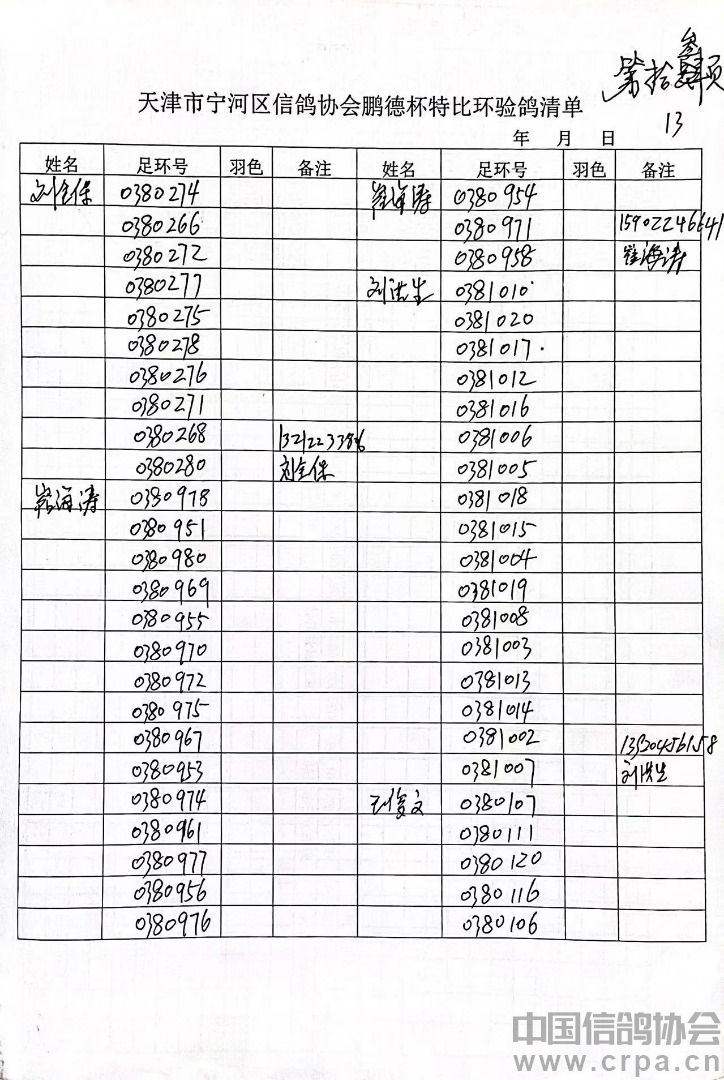 第拾叁页
13
天津市宁河区信鸽协会鹏德杯特比环验鸽清单
年 月 日
姓名 足环号 羽色 备注 姓名 足环号 羽色 备注
刘全保 0380274 崔海涛 0380954
0380266 0380971 15902246641
0380272 0380958 崔海涛
0380277 刘洪生 0381010
0380275 0381020
0380278 0381017
0380276 0381012
0380271 0381016
0380268 0381006
0380280 刘全保 0381005
崔海涛 0380978 0381018
0380951 0381015
0380980 0381004
0380969 0381019
0380955 0381008
0380970 0381003
0380972 0381013
0380975 0381014
0380967 0381002 13930456158
0380953 0381007 刘洪生
0380974 0380107
0380961 0380111
0380977 0380120
0380956 0380116
0380976 0380106
中国信鸽协会
www.crpa.cn